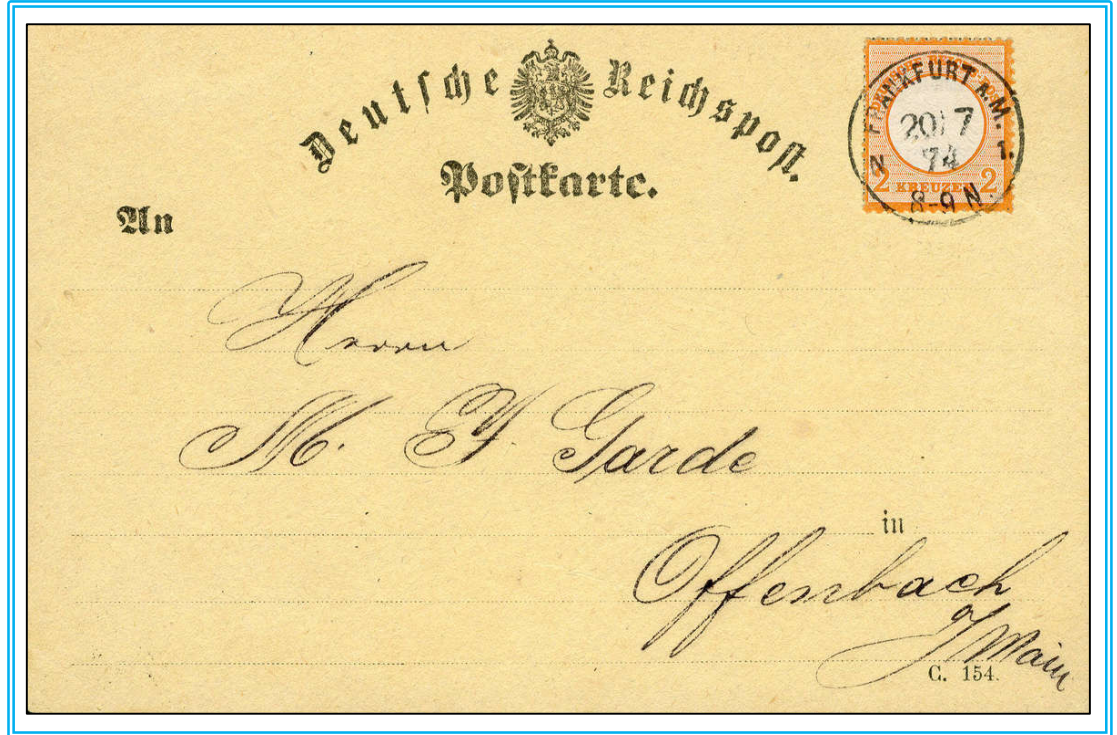 Deutsche Reichspost.
Postkarte.
FRANKFURT A.M.
N 1.
20 7
74
8-9 N.
2 KREUZER 2
An
Herrn
M. Garde
in
Offenbach
a/Main
C. 154.